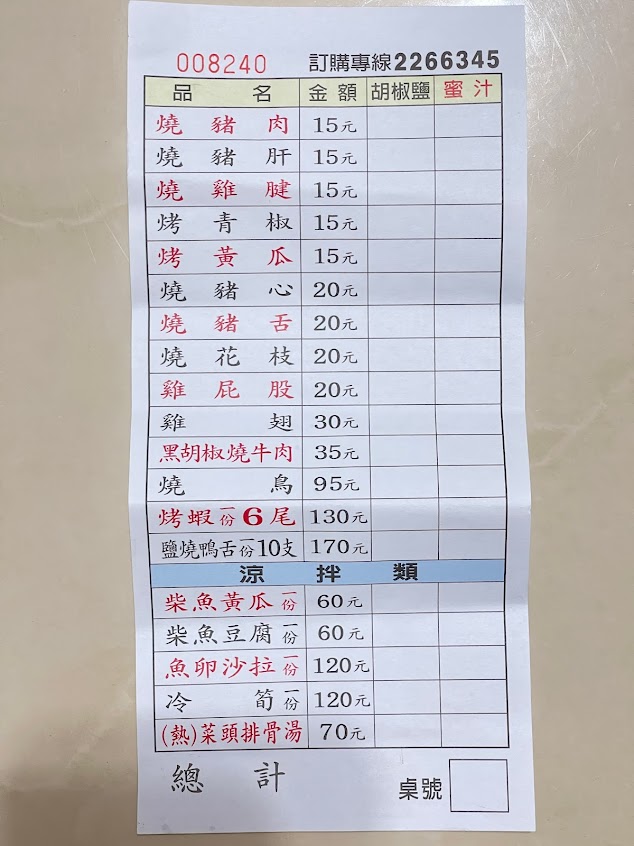 008240 訂購專線2266345
品名 金額 胡椒鹽 蜜汁
燒豬肉 15元
燒豬肝 15元
燒雞腱 15元
烤青椒 15元
烤黃瓜 15元
燒豬心 20元
燒豬舌 20元
燒花枝 20元
雞屁股 20元
雞翅 30元
黑胡椒燒牛肉 35元
燒鳥 95元
烤蝦一份6尾 130元
鹽燒鴨舌一份10支 170元
涼拌類
柴魚黃瓜一份 60元
柴魚豆腐一份 60元
魚卵沙拉一份 120元
冷筍一份 120元
(熱)菜頭排骨湯 70元
總計 桌號